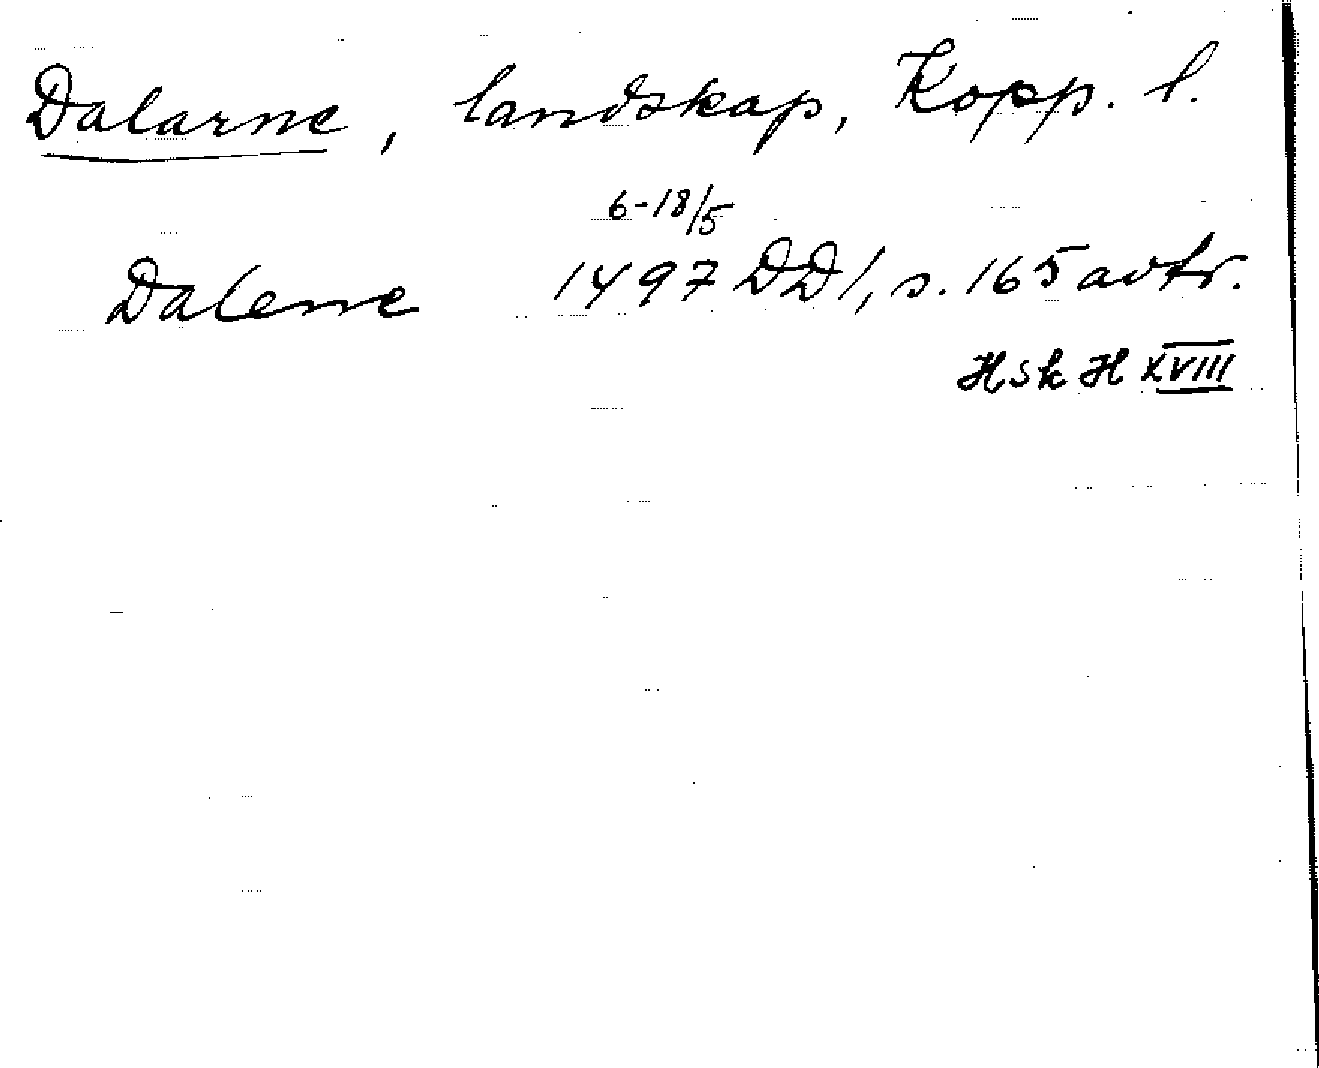 Dalarne, landskap, Kopp. l.
6-18/5
Dalene 1497 DD1, s. 165 avtr.
HSH XVIII